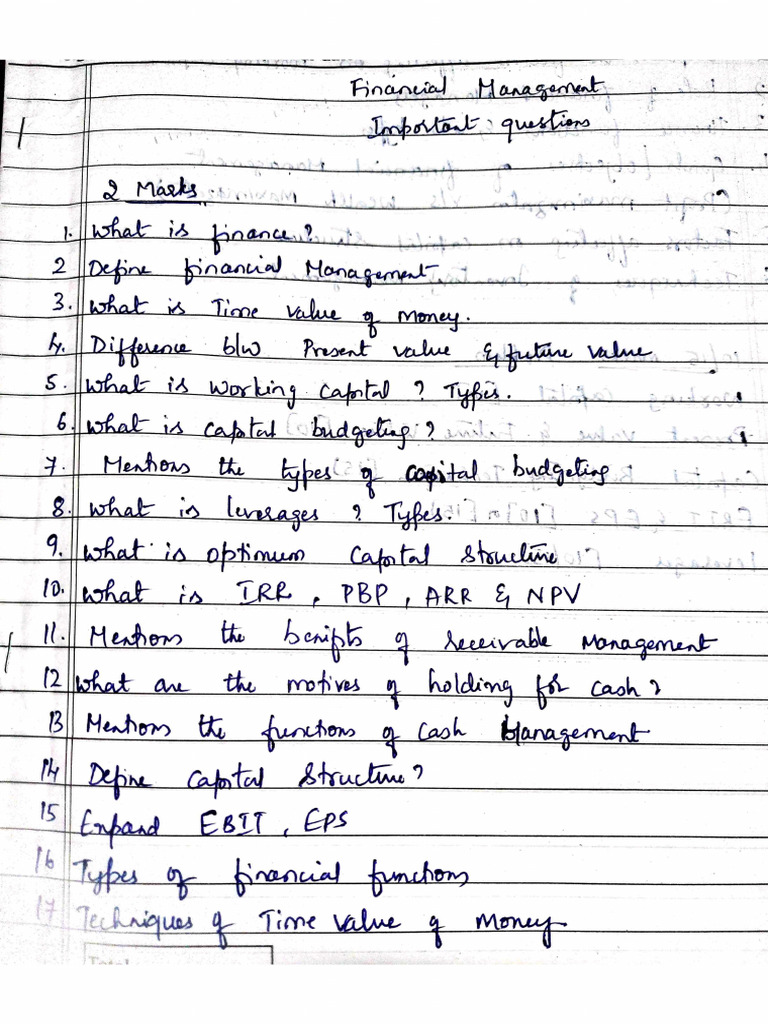 Financial Management
Important questions
2 Marks
1. What is finance?
2 Define financial Management
3. What is Time value of money.
4. Difference b/w Present value & future value
5. What is working capital ? Types.
6. What is capital budgeting?
7. Mentions the types of capital budgeting
8. What is leverages ? Types.
9. What is optimum capital structure
10. What is IRR, PBP, ARR & NPV
11. Mentions the benifits of receivable Management
12 What are the motives of holding for cash?
13 Mentions the functions of cash Management
14 Define capital structure?
15 Expand EBIT, EPS
16 Types of financial functions
17 Techniques of Time value of money